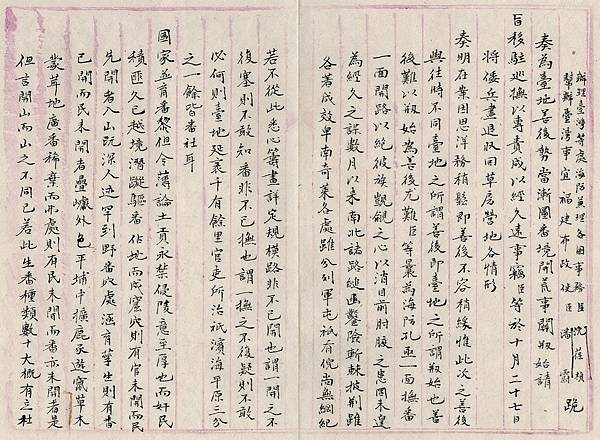 辦理臺灣等處海防兼理各國事務臣沈葆楨
幫辦臺灣事宜福建布政使臣潘霨跪
奏為臺地善後勢當漸圖番境開荒事關刱始請
旨移駐巡撫以專責成以經久遠事竊臣等於十月二十七日
將倭兵盡退收回草房營地各情形
奏明在案因思洋務稍鬆即善後不容稍緩惟此次之善後
與往時不同臺地之所謂善後即臺地之所謂刱始也善
後難以刱始為善後尤難臣等曩為海防孔亟一面撫番
一面開路以絕彼族覬覦之心以消目前肘腋之患固未遑
為經久之謀數月以來南北諸路縋幽鑿險斬棘披荊雖
各著成效卑南奇萊各處雖分列軍屯祇有倪尚無綱紀
若不從此悉心籌畫詳定規模路非不已開也謂一開之不
復塞則不敢知番非不已撫也謂一撫之不復疑則不敢
必何則臺地延袤千有餘里官吏所治祇濱海平原三分
之一餘皆番社耳
國家並育番黎但令薄輸土貢永禁侵陵意至厚也而奸民
積匪久已越境潛蹤驅番佔地而成窟穴則有官未開而民
先開者入山既深人迹罕到野番穴處涵育孳生則有番
已開而民未開者疊巘外包平埔中擴鹿豕遊竄草木
蒙茸地廣番稀棄而弗處則有民未開而番亦未開者是
但言開山而山之不同已若此生番種類數十大概有三牡